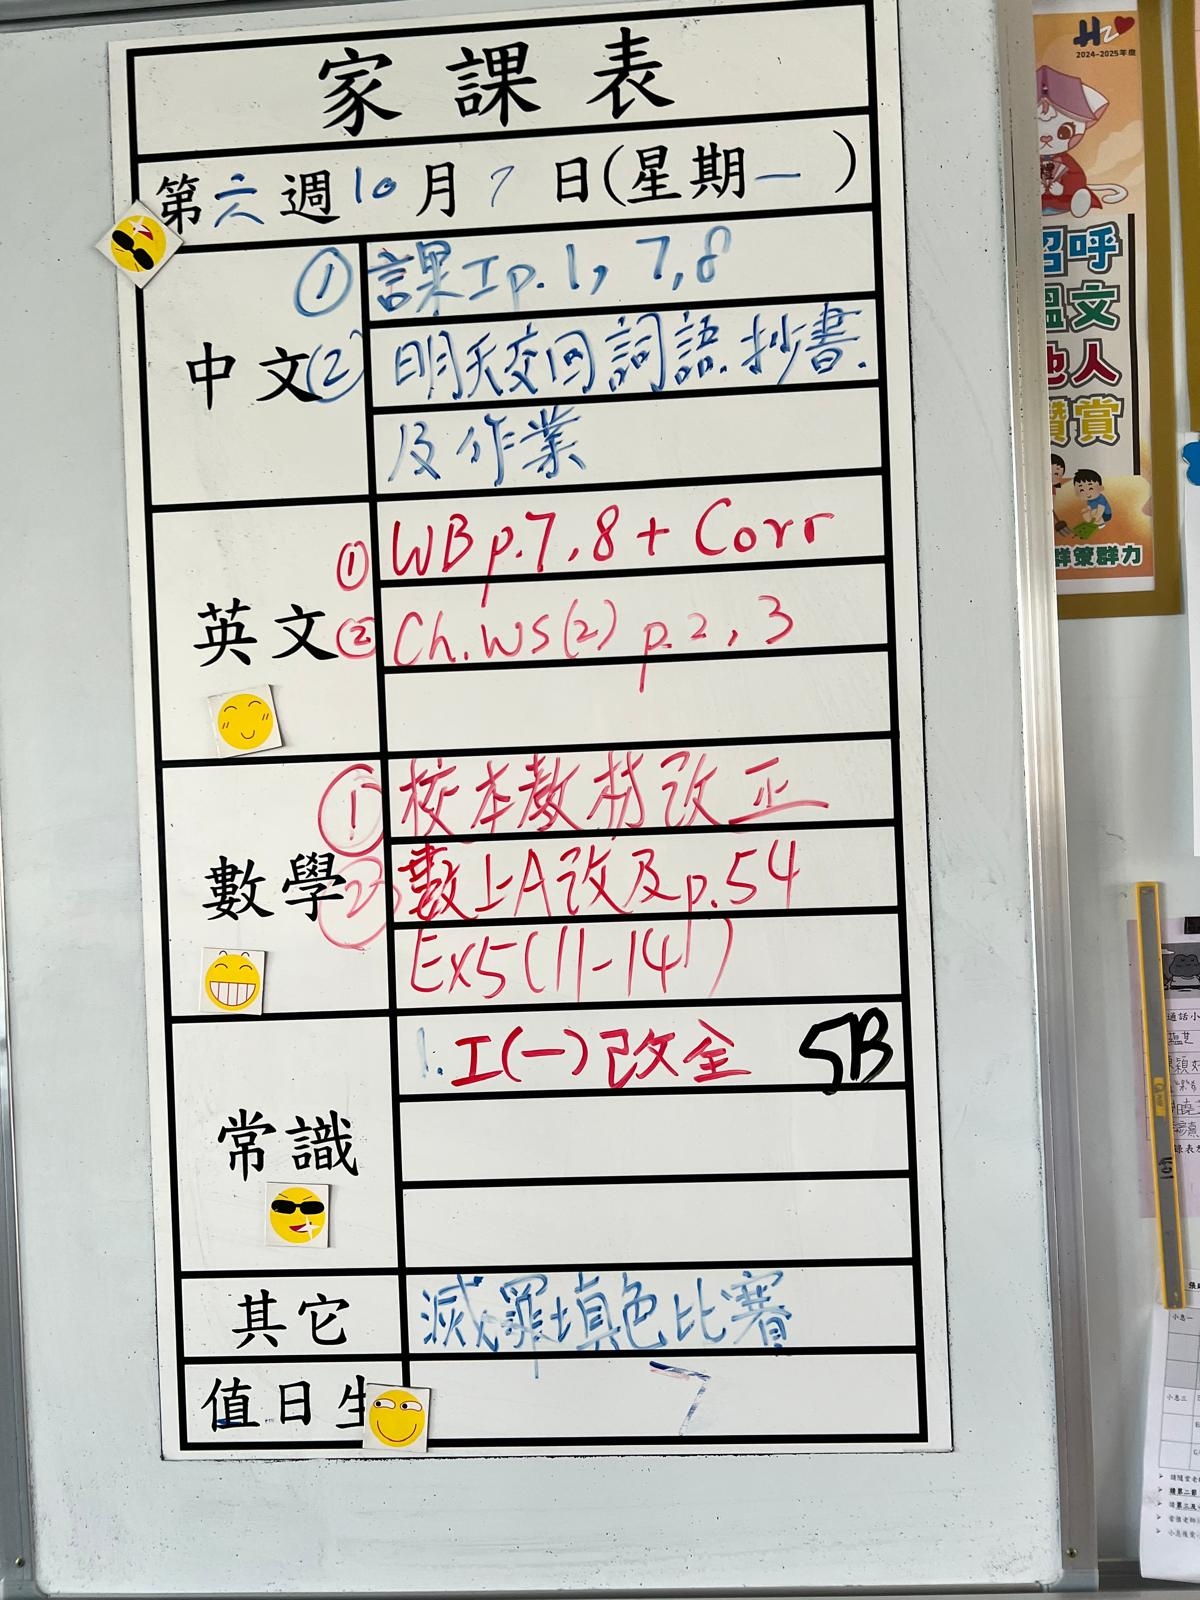 家課表
第六週10月7日(星期一)
中文
① 課工p.1, 7,8
② 明天交回詞語.抄書.
及作業
英文
① WB p.7,8 + Corr
② Ch.WS(2) p.2, 3
數學
① 校本教材改正
② 數上A改及p.54
Ex5(11-14)
常識
1. 工(一)改全 5B
其它
滅罪填色比賽
值日生
7
H2
2024-2025年度
呼
文
他人
讚賞
群策群力
通話小
小息一
小息三